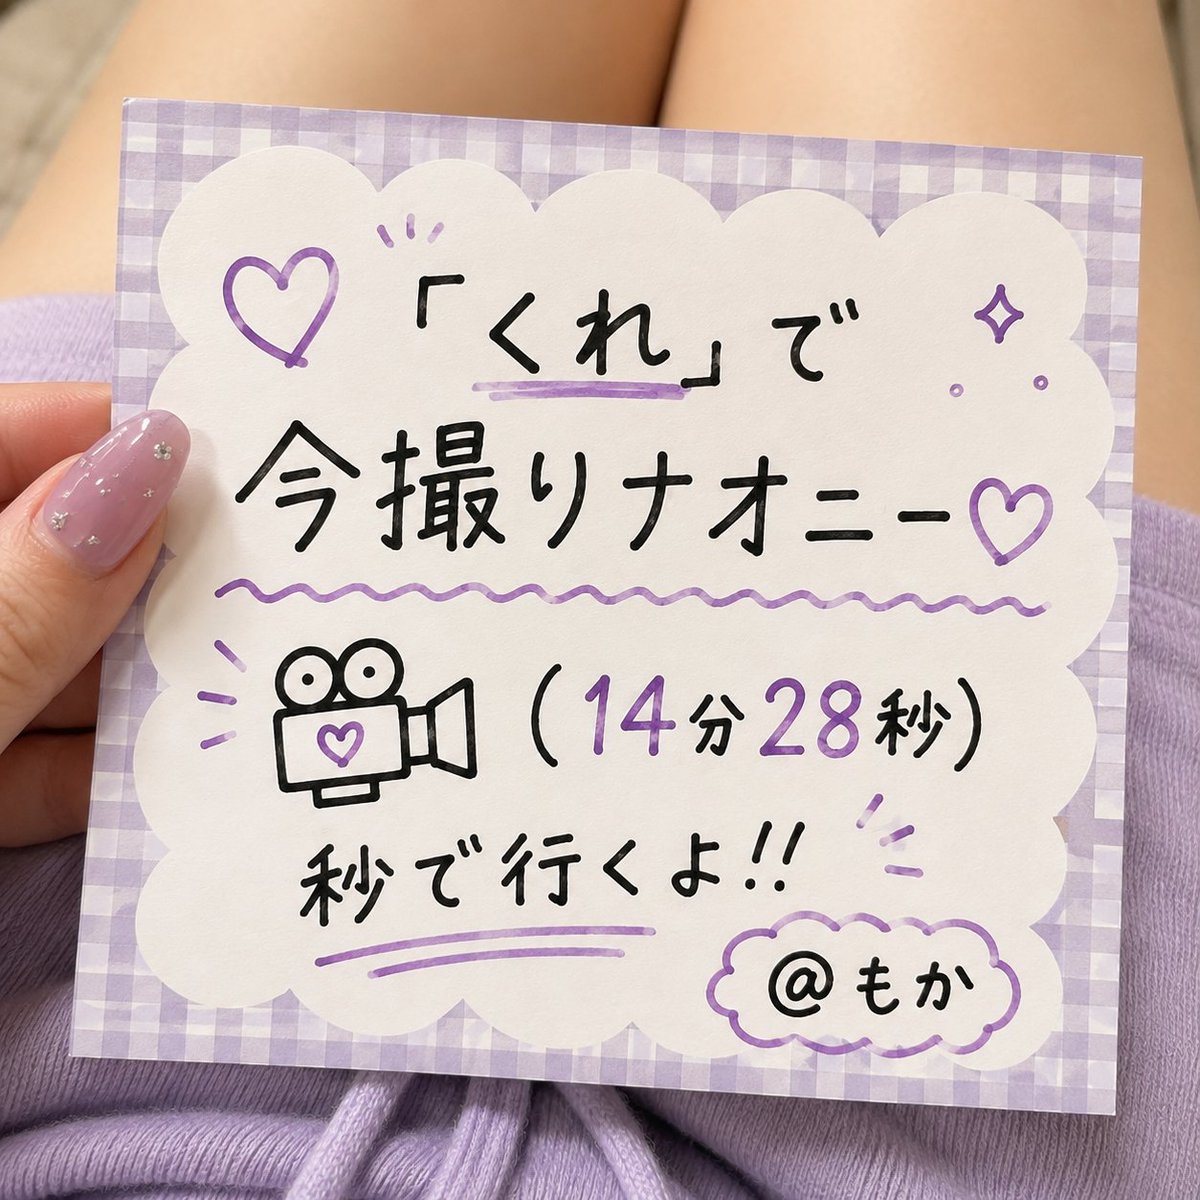 「くれ」で
今撮りナオニー
(14分28秒)
秒で行くよ!!
@もか